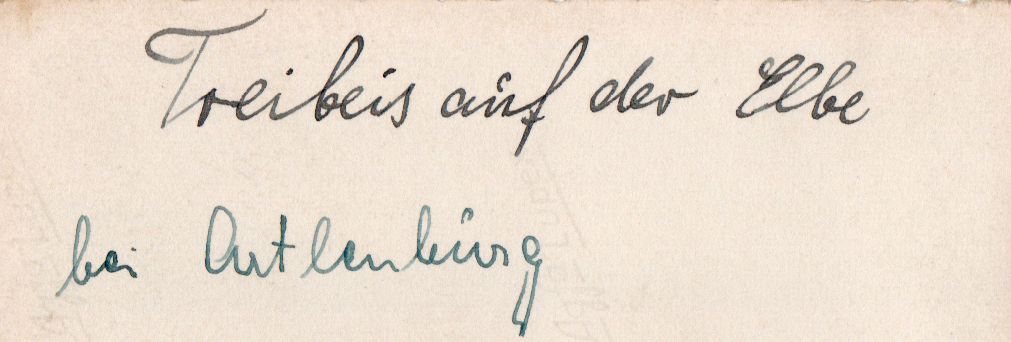 Treibeis auf der Elbe
bei Artlenburg